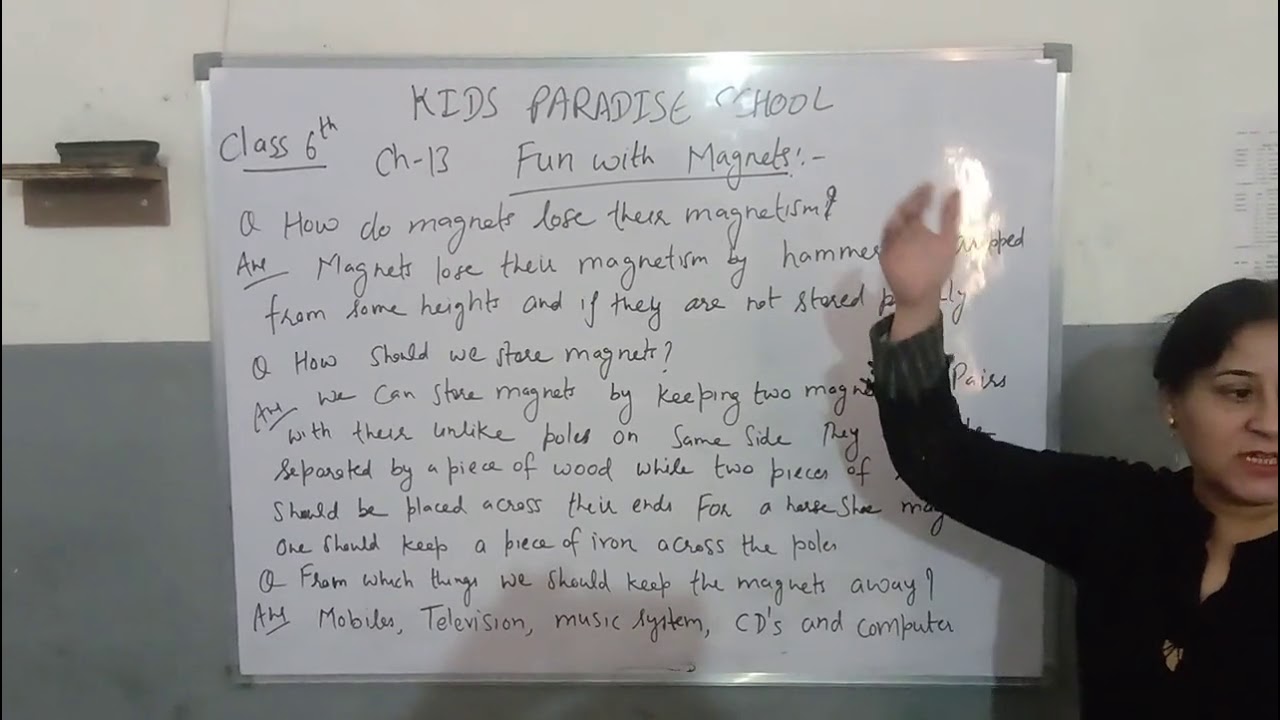 KIDS PARADISE SCHOOL
Class 6th
Ch-13 Fun with Magnets:-
Q How do magnets lose their magnetism?
Ans Magnets lose their magnetism by hammer
from some heights and if they are not stored
Q How should we store magnets?
Ans We can store magnets by keeping two Pairs
with their unlike poles on same side They
separated by a piece of wood while two pieces of
should be placed across their ends For a horse shoe
one should keep a piece of iron across the poles
Q From which things we should keep the magnets away?
Ans Mobiles, Television, music system, CD's and computer